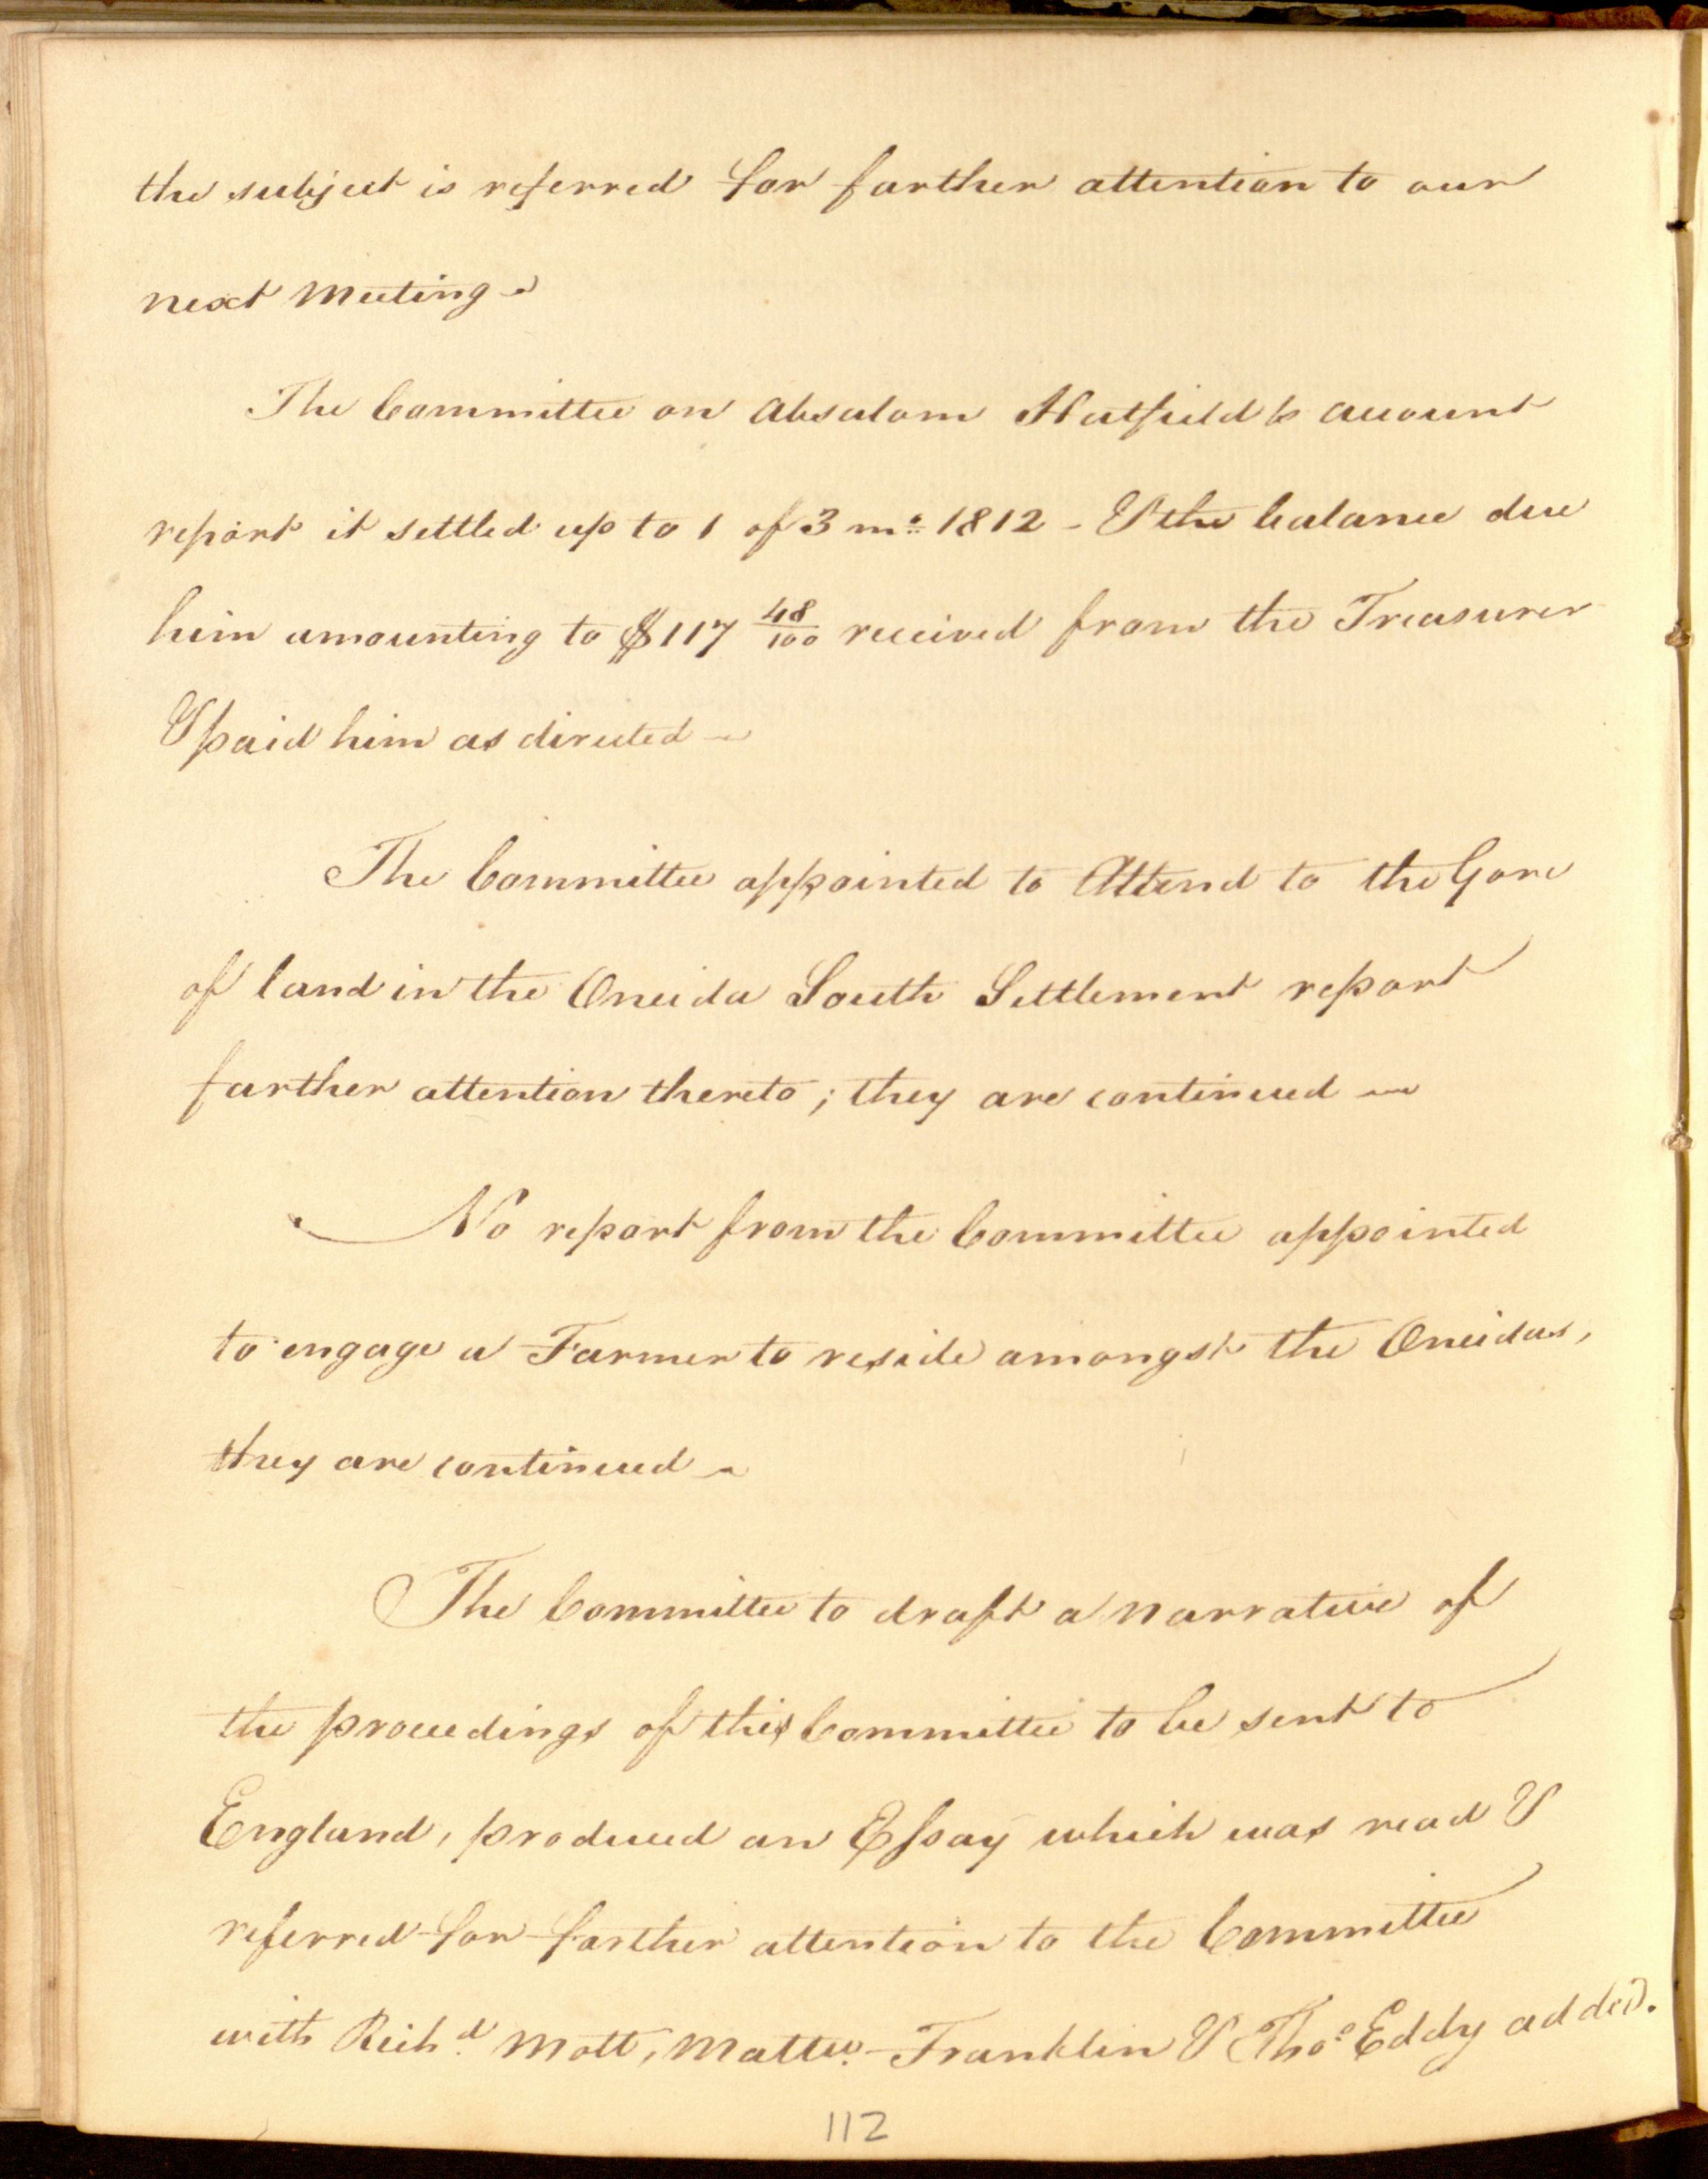 the subject is referred for farther attention to our
next Meeting -
The Committee on Absalom Hatfields account
report it settled up to 1 of 3 mo. 1812 - & the balance due
him amounting to $117 48/100 received from the Treasurer
& paid him as directed -
The Committee appointed to Attend to the Gore
of land in the Oneida South Settlement report
farther attention thereto; they are continued -
No report from the Committee appointed
to engage a Farmer to reside amongst the Oneidas,
they are continued -
The Committee to draft a Narrative of
the proceedings of this Committee to be sent to
England, produced an Essay which was read &
referred for farther attention to the Committee
with Richd. Mott, Mattw. Franklin & Thos. Eddy added.
112